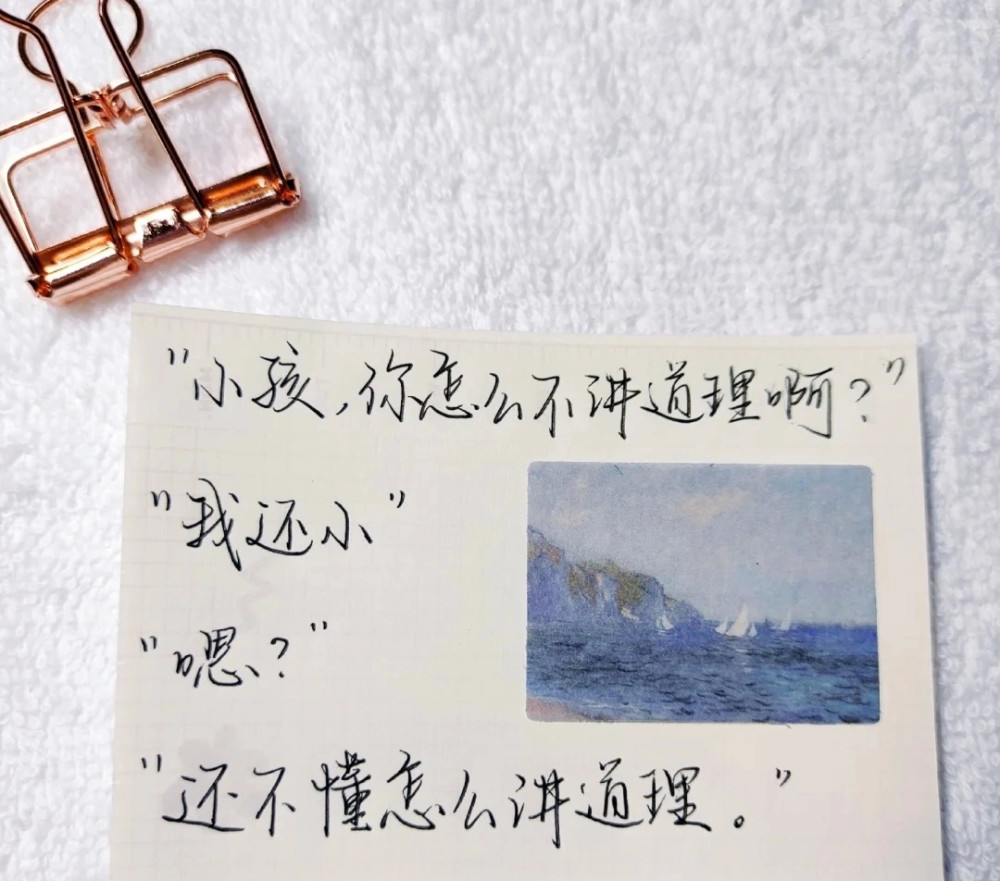 "小孩,你怎么不讲道理啊?"
"我还小"
"嗯?"
"还不懂怎么讲道理。"